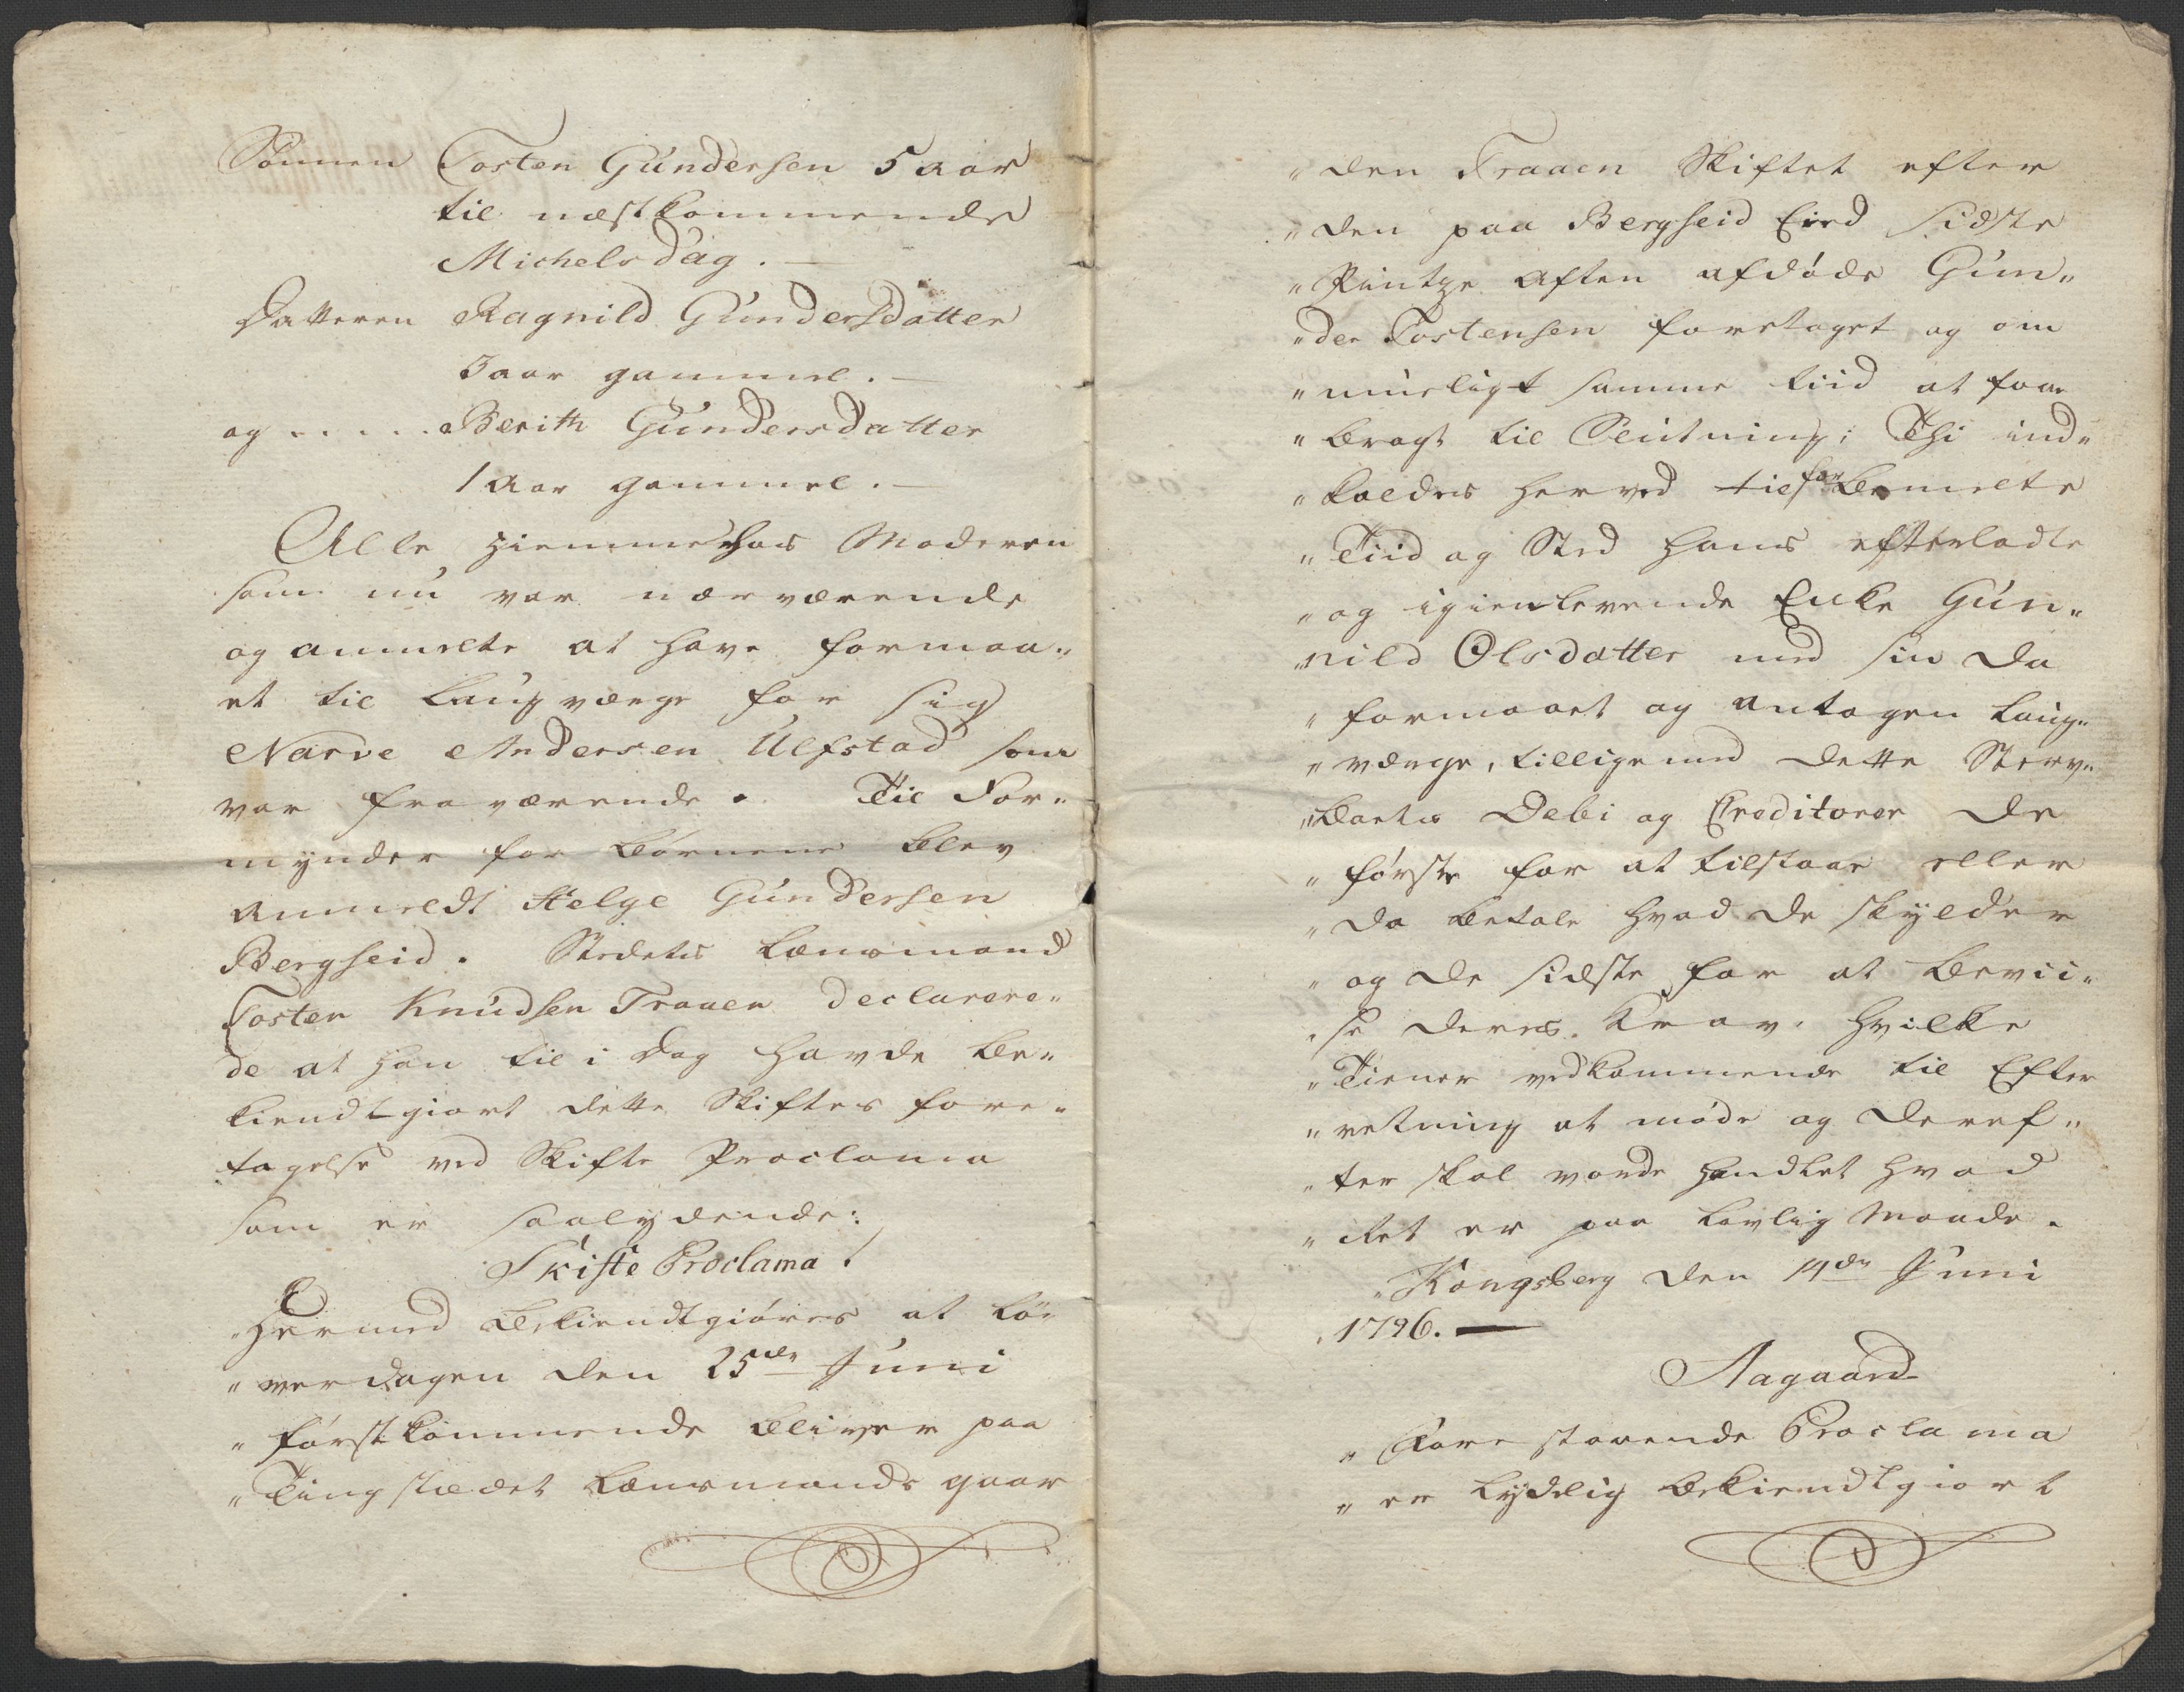 Sönnen Tosten Gundersen 5 aar
til næstkommende
Michelsdag.
Datteren Ragnild Gundersdatter
3 aar gammel.
og . . . . . Berith Gundersdatter
1 Aar gammel.
Alle hiemme hos Moderen
som nu var nærværende
og anmelte at have formaa„
et til Laugværge for sig
Narve Andersen Ulfstad som
var fraværende. Til For„
mynder for Börnene blev
anmeldt Helge Gundersen
Bergseid. Stedets Lænsmand
Tosten Knudsen Traaen declarere„
de at han til i Dag havde be„
kiendtgiort dette Skiftes fore„
tagelse ved Skifte Proclama
som er saalydende:
Skifte Proclama!
„Hermed bekiendtgiöres at Lö„
„verdagen den 25de Juni
„förstkommende bliver paa
„Tingstædet Lænsmands gaar
„den Traaen Skiftet efter
„den paa Bergseid Eied sidste
„Pintze Aften afdöde Gun„
„der Tostensen foretaget og om
„mueligt samme tiid at faae
„bragt til Slutning; Thi ind„
„kaldes herved til forbemelte
„Tiid og Sted hans efterladte
„og igienlevende Enke Gun„
„nild Olsdatter med sin da
„formaaet og antagen Laug„
„værge, tilligemed dette Sterv„
„boets Debi og Creditorer de
„förste for at tilstaae eller
„da betale hvad de skylder
„og de sidste for at bevii„
„se deres Krav. hvilke
„Tiener vedkommende til Efter
„retning at möde og deref„
„ter skal vorde handlet hvad
„Ret er paa lovlig Maade.
„Kongsberg den 14de Juni
„1796.
Aagaard
„Forestaaende Proclama
„er lydelig bekiendtgiort